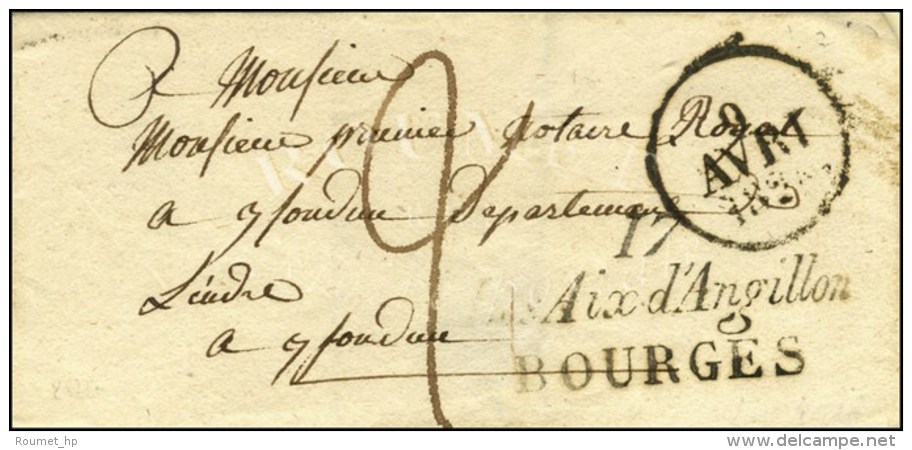 a Monsieur
Monsieur premier Notaire Royal
a ysoudun Departement
Léindre
a ysoudun
2
9
AVRI
17
Aix d'Angillon
BOURGES
Roumet_hp
www.delcampe.net